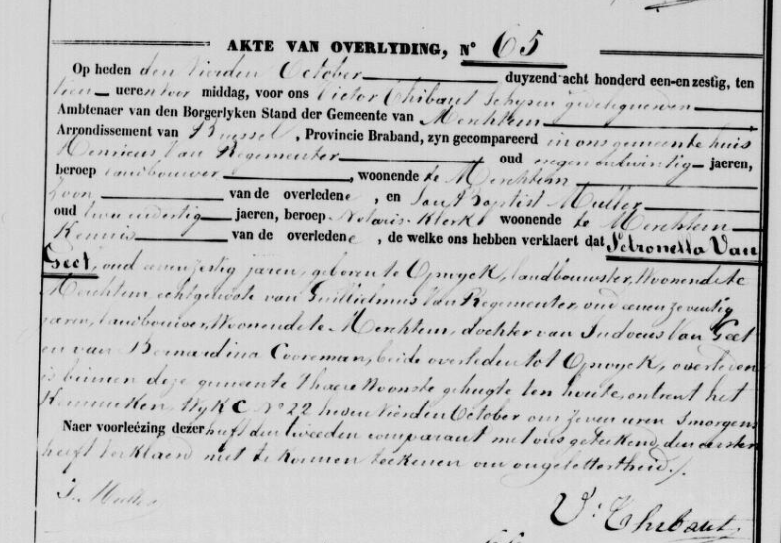 AKTE VAN OVERLYDING, N° 65
Op heden den vierden October duyzend acht honderd een-en zestig, ten
tien uren voor middag, voor ons Victor Thibaut Schepen gedelegueerden
Ambtenaer van den Borgerlyken Stand der Gemeente van Merchtem
Arrondissement van Brussel, Provincie Braband, zyn gecompareerd in ons gemeente huis
Henricus Van Regementer oud negen en twintig jaeren,
beroep landbouwer, woonende te Merchtem
Zoon van de overledene, en Jan Baptist Muller
oud twee en dertig jaeren, beroep Notaris-klerk woonende te Merchtem
Kennis van de overledene, de welke ons hebben verklaert dat Petronella Van
Geel, oud eenenzestig jaren, geboren te Opwyck, landbouwster, Woonende te
Merchtem echtgenote van Guillielmus Van Regementer, oud eenen zeventig
jaren, landbouwer, Woonende te Merchtem, dochter van Judocus Van Geel
en van Bernardina Cooreman, beide overleden tot Opwyck, overleden
is binnen deze gemeente t'haere Woonste gehugte ten houte, ontrent het
Wyk C N° 22 heden Vierden October om zeven uren smorgens
Naer voorleézing dezer heeft den tweeden comparant met ons geteekend, den eersten
heeft Verklaerd niet te konnen teekenen om ongeletterheid.
J. Muller
V: Thibaut